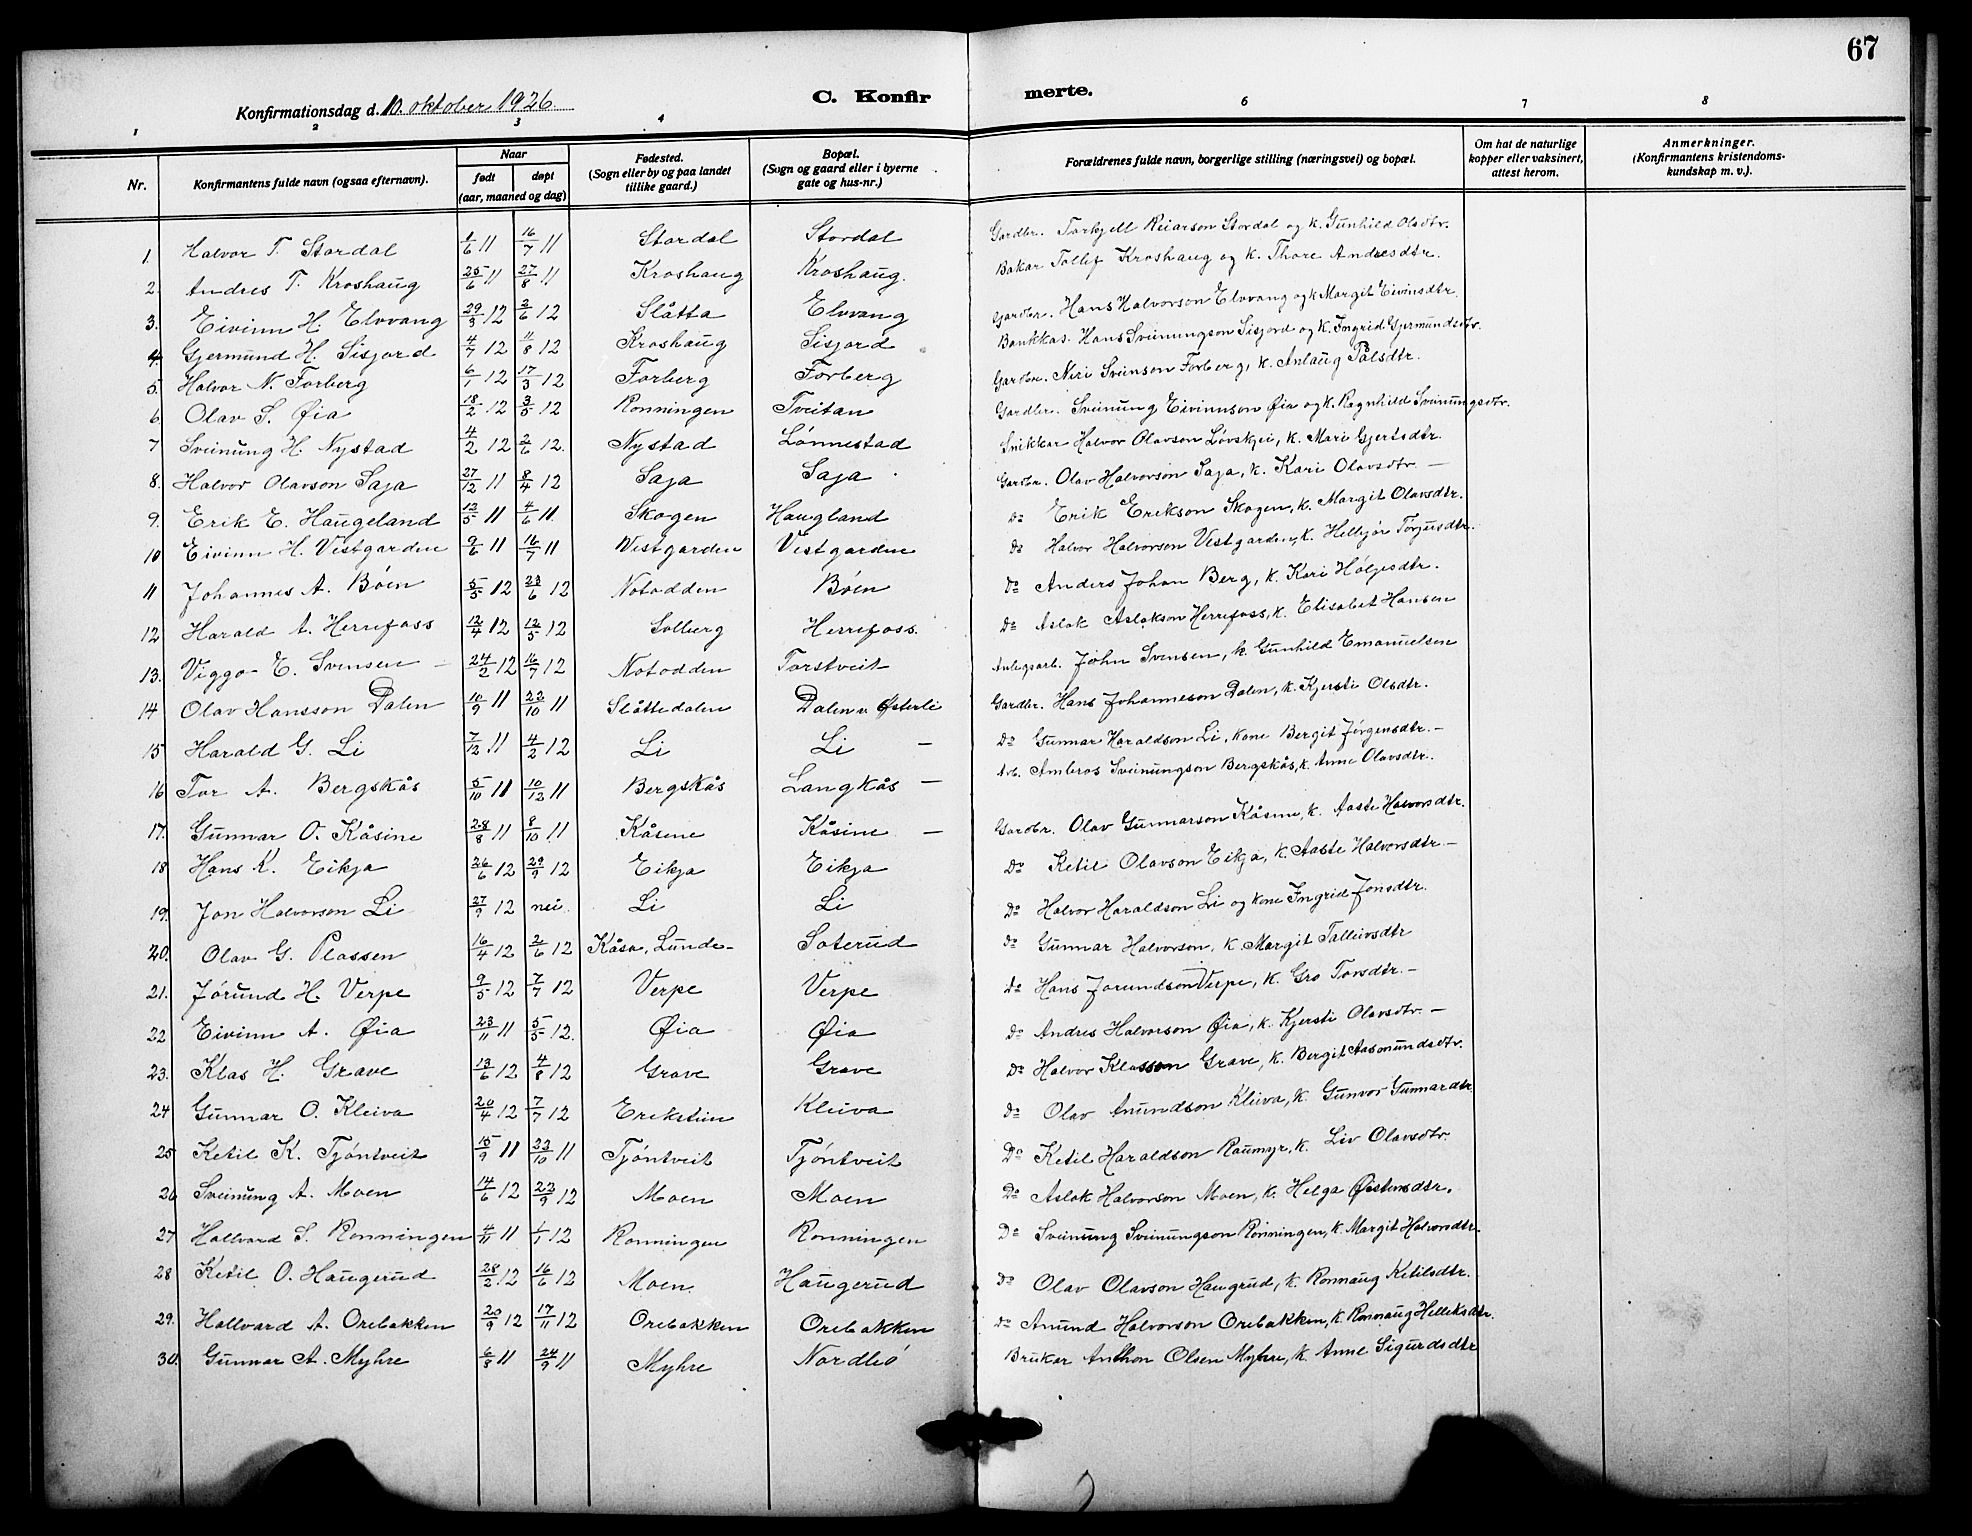 67
Konfirmationsdag d. 10. oktober 1926
C. Konfir merte.
1 2 3 4 6 7 8
Nr. Konfirmantens fulde navn (ogsaa efternavn). Naar født døpt (aar, maaned og dag) Fødested. (Sogn eller by og paa landet tillike gaard.) Bopæl. (Sogn og gaard eller i byerne gate og hus-nr.) Forældrenes fulde navn, borgerlige stilling (næringsvei) og bopæl. Om hat de naturlige kopper eller vaksinert, attest herom. Anmerkninger. (Konfirmantens kristendoms-kundskap m. v.).
1. Halvor T. Stordal 1/6 11 16/7 11 Stordal Stordal Gardbr. Torkjell Reiarson Stordal og k. Gunhild Olsdtr.
2. Andres T. Kroshaug 25/6 11 27/8 11 Kroshaug Kroshaug. Bakar Tollef Kroshaug og k. Thore Andresdtr.
3. Eivinn H. Elvvang 29/3 12 2/6 12 Slåtta Elvvang Gardbr. Hans Halvorson Elvvang og k Margit Eivinsdtr.
4. Gjermund H. Sisjord 4/7 12 11/8 12 Kroshaug Sisjord Bankkas. Hans Sveinungson Sisjord og k. Ingrid Gjermundsdtr.
5. Halvor N. Forberg 6/1 12 17/3 12 Forberg Forberg Gardbr. Niri Sveinson Forberg, k. Anlaug Pålsdtr.
6. Olav S. Øia 18/2 12 3/5 12 Rønningen Tveitan Gardbr. Sveinung Eivinnson Øia og k. Ragnhild Sveinungsdtr.
7 Sveinung H. Nystad 4/2 12 2/6 12. Nystad Lønnestad Snikkar Halvor Olavson Løvskjei, k. Mari Gjertsdtr.
8. Halvor Olavson Saga 27/12 11 8/4 12 Saga Saga Gardbr. Olav Halvorson Saga, k. Kari Olavsdtr. —
9. Erik E. Haugeland 12/5 11 4/6 11. Skogen Haugland Do Erik Erikson Skogen, k. Margit Olavsdtr.
10 Eivinn H. Vestgarden 9/6 11 16/7 11 Vestgarden Vestgarden Do Halvor Halvorson Vestgarden, k. Hellyør Torjusdtr.
11 Johannes A. Bøen 5/5 12 23/6 12 Notodden Bøen Do Anders Johan Berg, k. Kari Holjesdtr.
12 Harald A. Herrefoss 12/4 12 12/5 12 Solberg Herrefoss. Do Aslak Aslakson Herrefoss, k. Elisabet Hansen
13. Viggo E. Svensen — 24/2 12 16/7 12 Notodden Torstveit Anlegsarb. John Svensen, k. Gunhild Emanuelsen
14 Olav Hansson Dalen 10/9 11 22/10 11 Slåttedalen Dalen u. Østerli Gardbr. Hans Johanneson Dalen, k. Kjersti Olsdtr.
15 Harald G. Li 7/12 11 4/2 12 Li Li — Do Gunnar Haraldson Li, kone Bergit Jörgensdtr. —
16 Tor A. Bergskås 5/10 11 10/12 11 Bergskås Langkås — Arb. Ambros Sveinungson Bergskås, k. Anne Olavsdtr.
17. Gunnar O. Kåsine 28/8 11 8/10 11 Kåsene Kåsine — Gardbr. Olav Gunnarson Kåsine, k. Aaste Halvorsdtr.
18 Hans K. Eikja 26/6 12 29/9 12 Eikja Eikja Do Ketil Olavson Eikja, k. Aaste Halvorsdtr. —
19. Jon Halvorson Li 27/9 12 nei Li Li Do Halvor Haraldson Li og kone Ingrid Jonsdtr.
20. Olav G. Plassen 16/4 12 2/6 12 Kåsa, Lunde- Soterud Do Gunnar Halvorson, k. Margit Talleivsdtr
21. Jørund H. Verpe 9/5 12 7/7 12 Verpe Verpe Do Hans Jorundson Verpe, k. Gro Torsdtr. —
22 Eivinn A. Øia 23/11 11 5/5 12. Øia Øia Do Andres Halvorson Øia, k. Kjersti Olavsdtr. —
23. Klas H. Grave 13/6 12 4/8 12 Grave Grave Do Halvor Klasson Grave, k. Bergit Aasmundsdtr.
24 Gunnar O. Kleiva 20/4 12 7/7 12 Erikstein Kleiva Do Olav Anundson Kleiva, k. Gunvor Gunnardtr
25 Ketil K. Tjöntveit 15/9 11 22/10 11 Tjöntveit Tjöntveit Do Ketil Haraldson Raumyr, k. Liv Olavsdtr.
26 Sveinung A. Moen 14/6 12 22/9 12 Moen Moen Do Aslak Halvorson Moen, k. Helga Østensdtr.
27 Hallvard S. Rønningen 4/11 11 1/1 12 Rønningen Rønningen Do Sveinung Sveinungson Rønningen, k. Margit Halvorsdtr.
28 Ketil O. Haugerud 28/2 12 16/6 12 Moen. Haugerud Do Olav Olavson Haugrud, k. Rønnaug Ketilsdtr.
29. Hallvard A. Orebakken 20/9 12 17/11 12 Orebakken Orebakken Do Anund Halvorson Orebakken, k. Rønnaug Helleksdtr.
30. Gunnar A. Myhre 6/8 11 24/9 11 Myhre Nordbø Brukar Anthon Olsen Myhre, k. Anne Sigurdsdtr